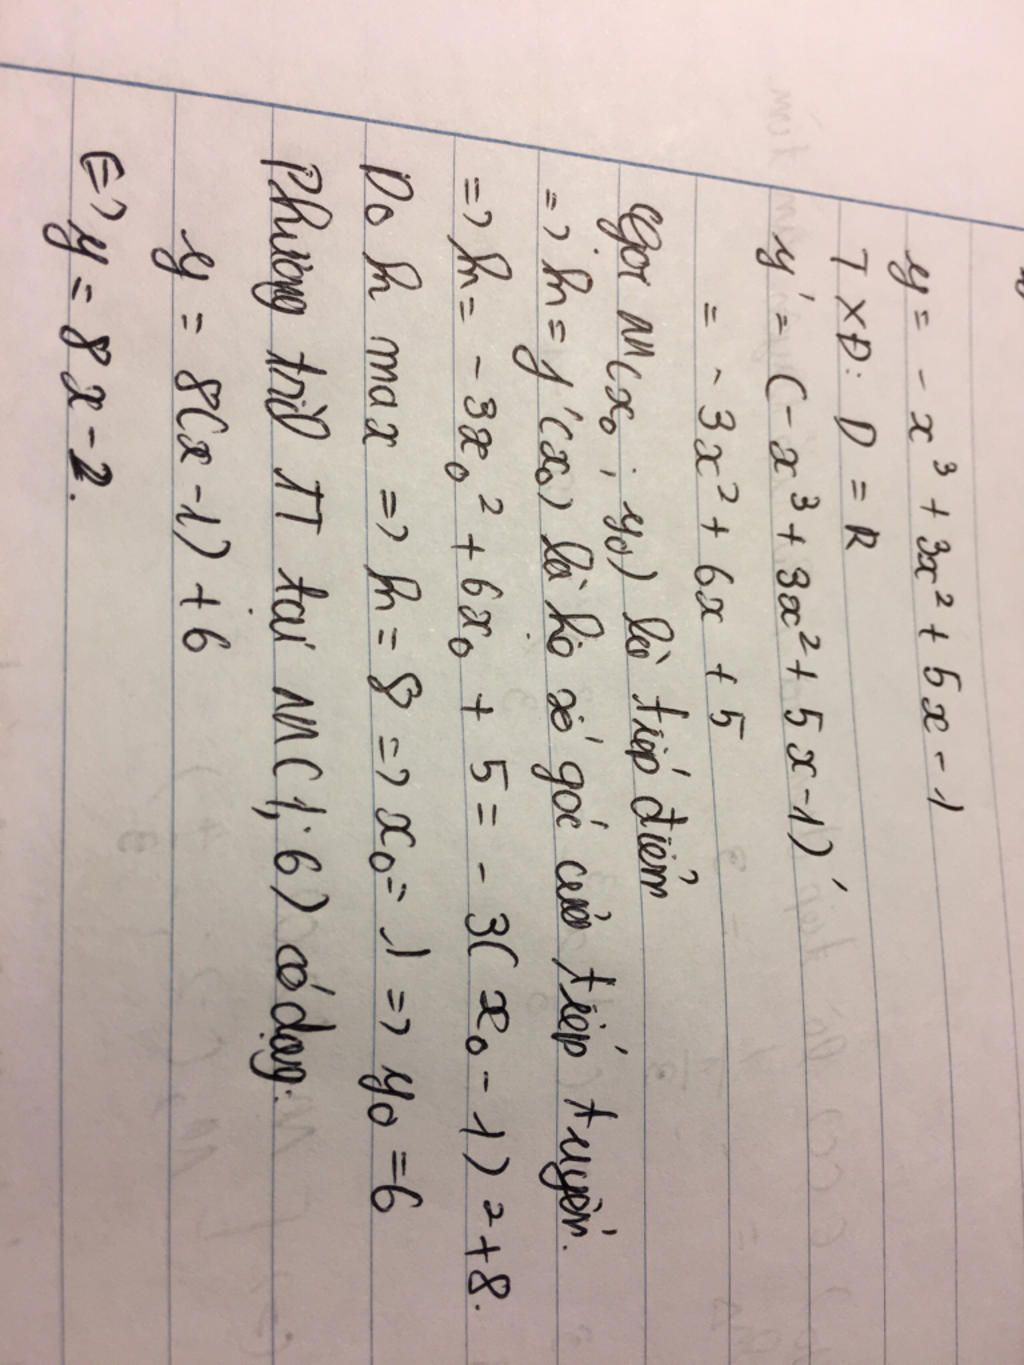 y = - x³ + 3x² + 5x - 1
TXĐ: D = R
y' = (- x³ + 3x² + 5x - 1)'
= - 3x² + 6x + 5
Gọi M(x₀; y₀) là tiếp điểm
=> k = y'(x₀) là hệ số góc của tiếp tuyến.
=> k = - 3x₀² + 6x₀ + 5 = - 3(x₀ - 1)² + 8.
Do k max => k = 8 => x₀ = 1 => y₀ = 6
Phương trình TT tại M(1; 6) có dạng:
y = 8(x - 1) + 6
<=> y = 8x - 2.